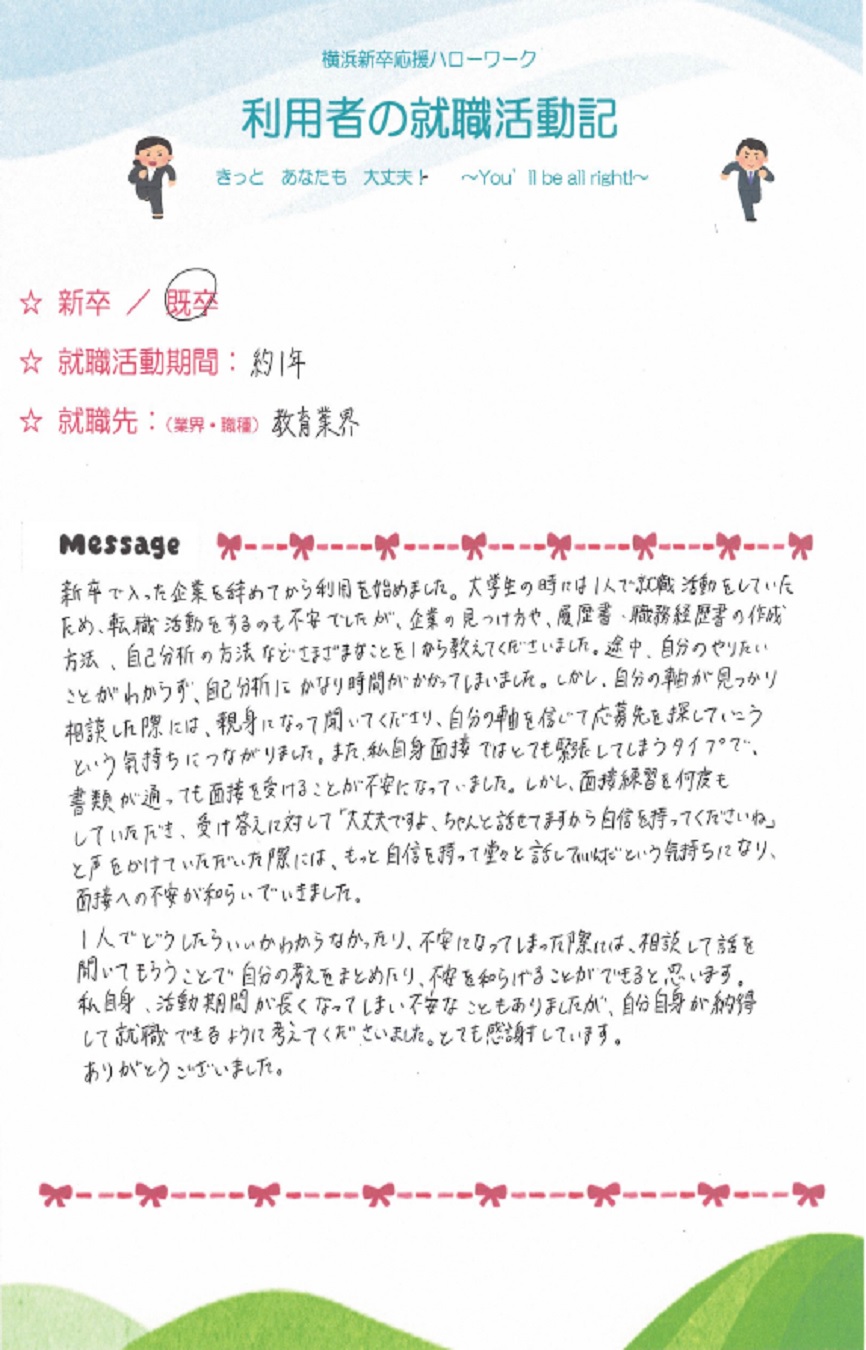 横浜新卒応援ハローワーク
利用者の就職活動記
きっと あなたも 大丈夫! ～You'll be all right!～
☆ 新卒 / 既卒
☆ 就職活動期間：約1年
☆ 就職先：(業界・職種) 教育業界
Message
新卒で入った企業を辞めてから利用を始めました。大学生の時には1人で就職活動をしていた
ため、転職活動をするのも不安でしたが、企業の見つけ方や、履歴書・職務経歴書の作成
方法、自己分析の方法などさまざまなことを1から教えてくださいました。途中、自分のやりたい
ことがわからず、自己分析にかなり時間がかかってしまいました。しかし、自分の軸が見つかり
相談した際には、親身になって聞いてくださり、自分の軸を信じて応募先を探していこう
という気持ちにつながりました。また、私自身面接ではとても緊張してしまうタイプで、
書類が通っても面接を受けることが不安になっていました。しかし、面接練習を何度も
していただき、受け答えに対して「大丈夫ですよ、ちゃんと話せてますから自信を持ってくださいね」
と声をかけていただいた際には、もっと自信を持って堂々と話していいんだという気持ちになり、
面接への不安が和らいでいきました。
1人でどうしたらいいかわからなかったり、不安になってしまった際には、相談して話を
聞いてもらうことで自分の考えをまとめたり、不安を和らげることができると思います。
私自身、活動期間が長くなってしまい不安なこともありましたが、自分自身が納得
して就職できるように考えてくださいました。とても感謝しています。
ありがとうございました。